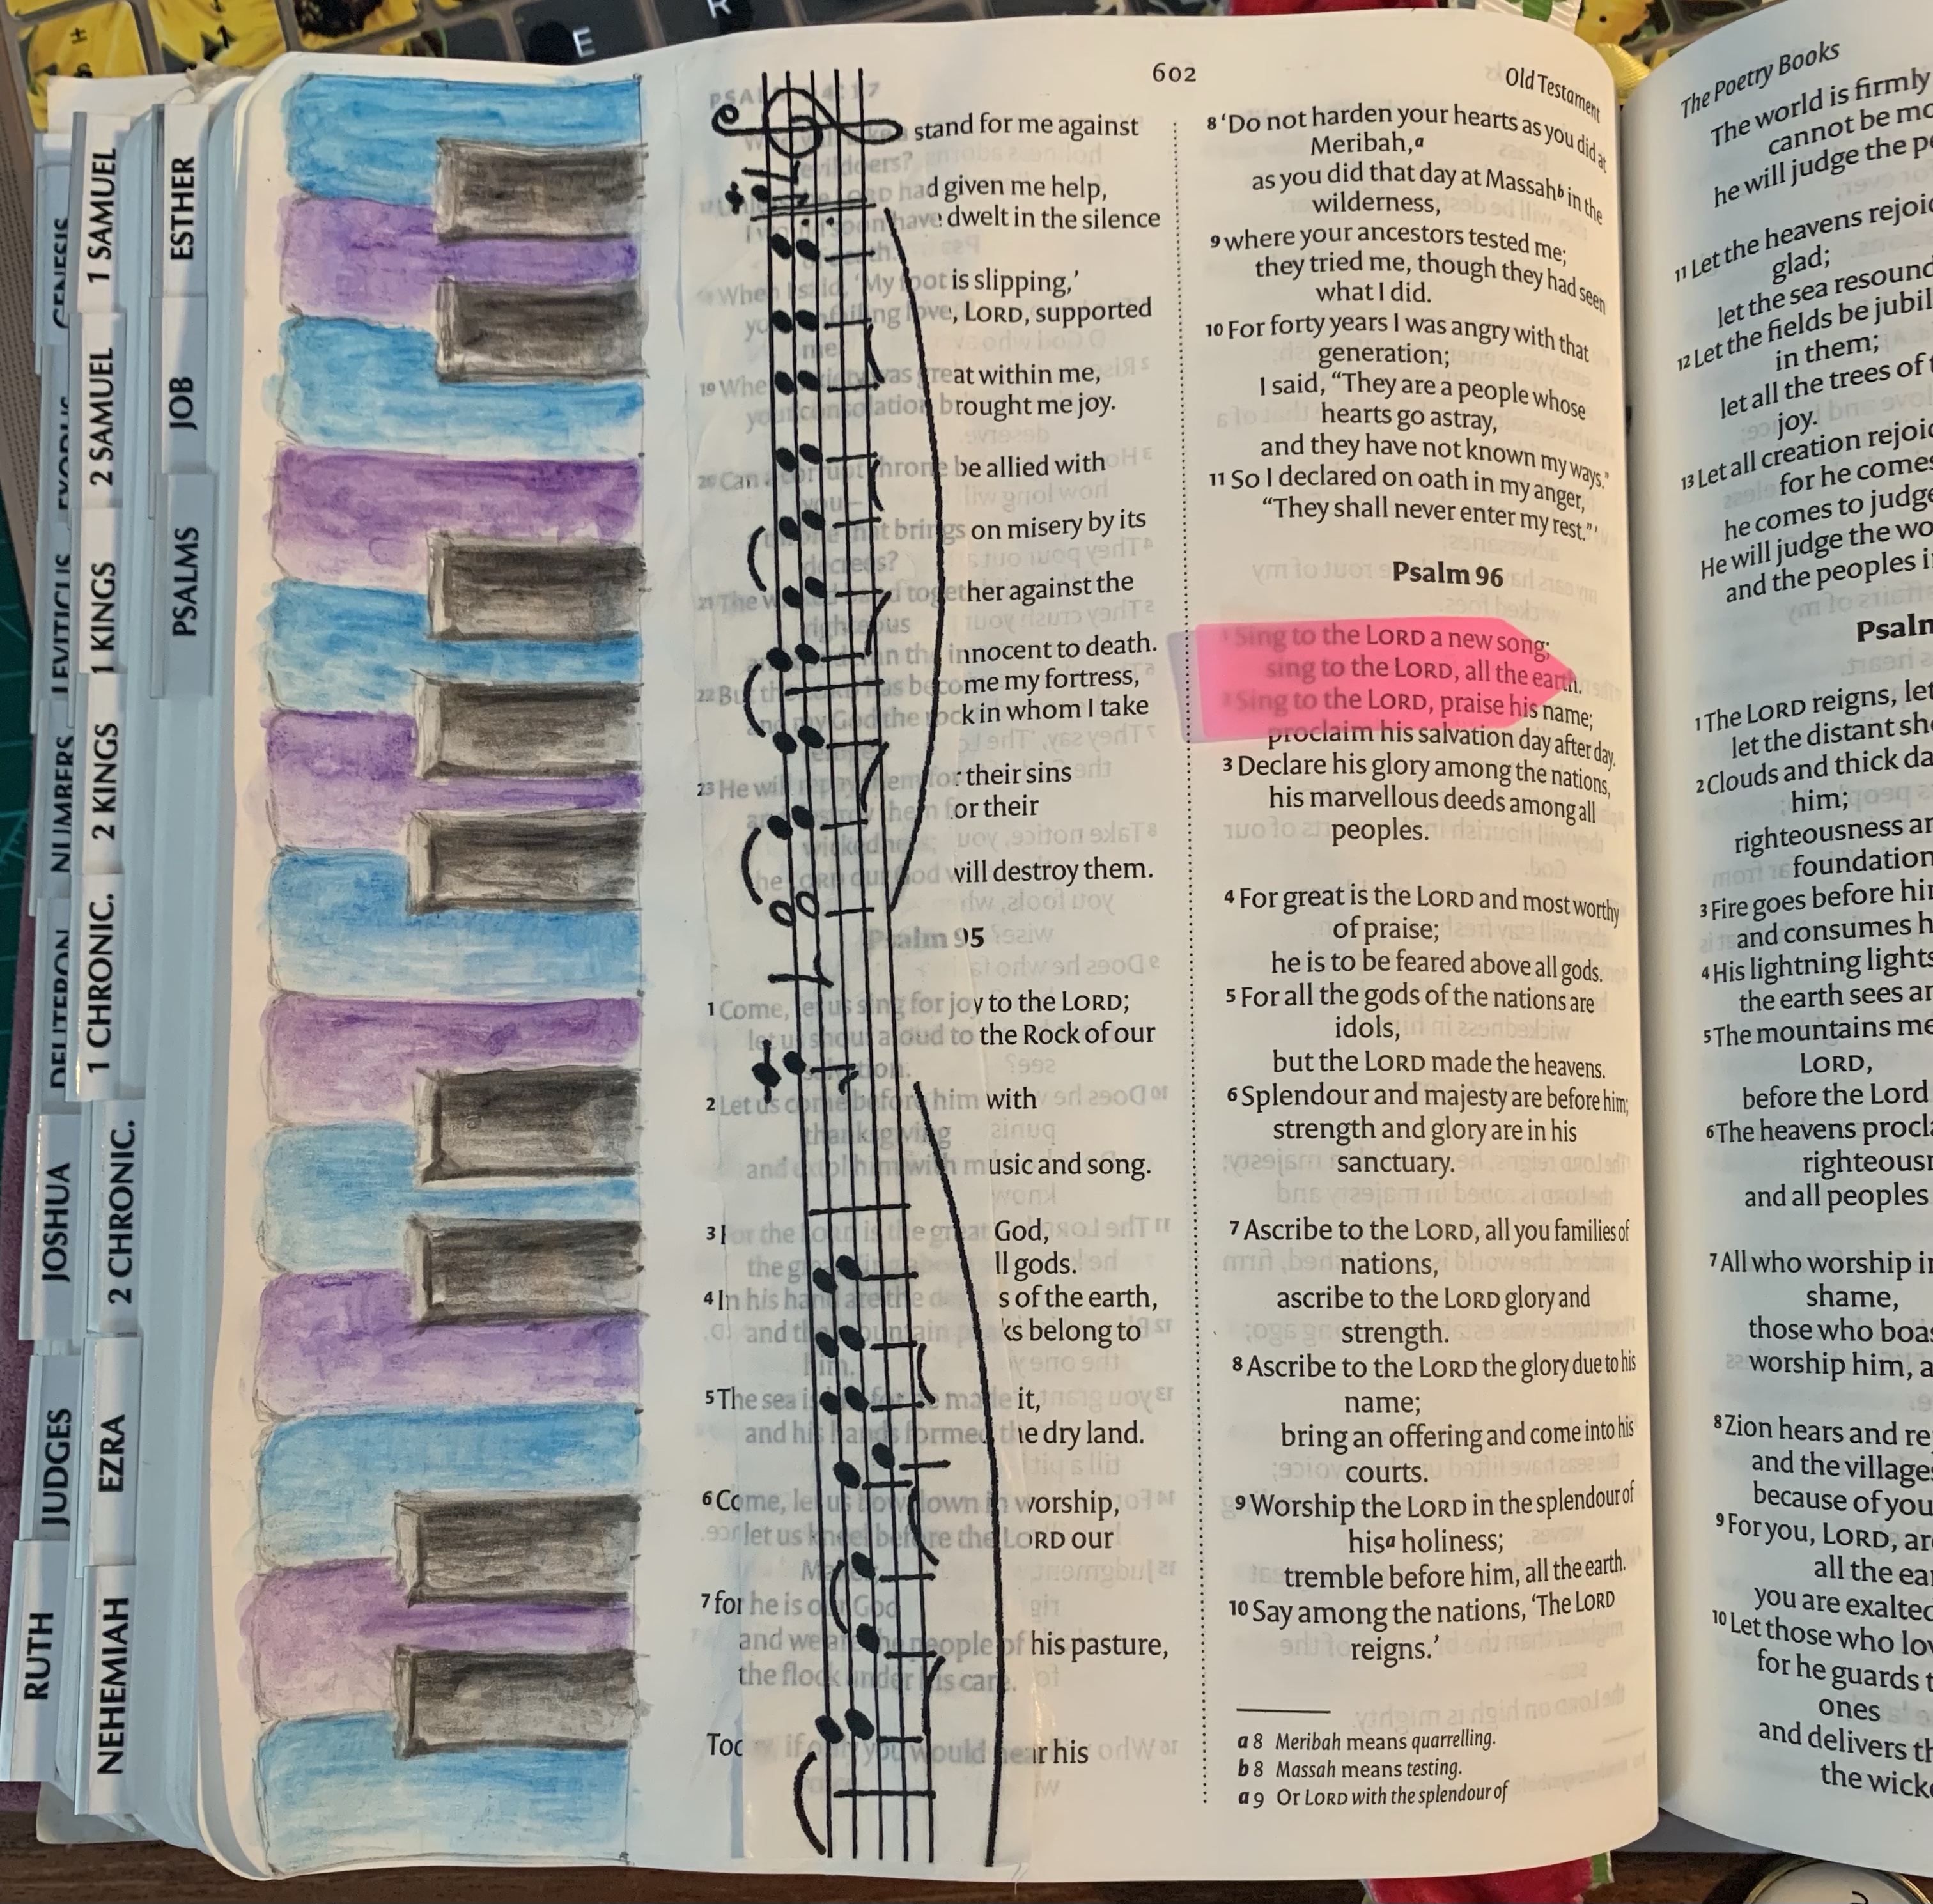 E
R
GENESIS
EXODUS
LEVITICUS
NUMBERS
DEUTERON.
JOSHUA
JUDGES
RUTH
1 SAMUEL
2 SAMUEL
1 KINGS
2 KINGS
1 CHRONIC.
2 CHRONIC.
EZRA
NEHEMIAH
ESTHER
JOB
PSALMS
602
Old Testament
stand for me against
evildoers?
had given me help,
have dwelt in the silence
When I said, ‘My foot is slipping,’
love, LORD, supported
me
19 When was great within me,
your consolation brought me joy.
20 Can a corrupt throne be allied with
you –
that brings on misery by its
decrees?
21 The together against the
righteous
the innocent to death.
22 But the has become my fortress,
and my God the rock in whom I take
23 He will repay them for their sins
them for their
wickedness;
the LORD our God will destroy them.
Psalm 95
1 Come, let us sing for joy to the LORD;
let us shout aloud to the Rock of our
2 Let us come before him with
thanksgiving
and extol him with music and song.
3 For the LORD is the great God,
the ll gods.
4 In his hand are the s of the earth,
and the mountain peaks belong to
him.
5 The sea is for he made it,
and his hands formed the dry land.
6 Come, let us bow down in worship,
let us kneel before the LORD our
7 for he is our God
and we are the people of his pasture,
the flock under his care.
Today, if only you would hear his
8 ‘Do not harden your hearts as you did at
Meribah,a
as you did that day at Massahb in the
wilderness,
9 where your ancestors tested me;
they tried me, though they had seen
what I did.
10 For forty years I was angry with that
generation;
I said, “They are a people whose
hearts go astray,
and they have not known my ways.”
11 So I declared on oath in my anger,
“They shall never enter my rest.” ’
Psalm 96
1 Sing to the LORD a new song;
sing to the LORD, all the earth.
2 Sing to the LORD, praise his name;
proclaim his salvation day after day.
3 Declare his glory among the nations,
his marvellous deeds among all
peoples.
4 For great is the LORD and most worthy
of praise;
he is to be feared above all gods.
5 For all the gods of the nations are
idols,
but the LORD made the heavens.
6 Splendour and majesty are before him;
strength and glory are in his
sanctuary.
7 Ascribe to the LORD, all you families of
nations,
ascribe to the LORD glory and
strength.
8 Ascribe to the LORD the glory due to his
name;
bring an offering and come into his
courts.
9 Worship the LORD in the splendour of
hisa holiness;
tremble before him, all the earth.
10 Say among the nations, ‘The LORD
reigns.’
a 8 Meribah means quarrelling.
b 8 Massah means testing.
a 9 Or LORD with the splendour of
The Poetry Books
The world is firmly
cannot be mo
he will judge the pe
11 Let the heavens rejoic
glad;
let the sea resound
12 Let the fields be jubil
in them;
let all the trees of t
joy.
13 Let all creation rejoic
for he comes
he comes to judge
He will judge the wo
and the peoples i
Psaln
1 The LORD reigns, let
let the distant sho
2 Clouds and thick da
him;
righteousness ar
foundation
3 Fire goes before hi
and consumes h
4 His lightning lights
the earth sees ar
5 The mountains me
LORD,
before the Lord
6 The heavens procla
righteousn
and all peoples
7 All who worship i
shame,
those who boas
worship him, a
8 Zion hears and re
and the village
because of you
9 For you, LORD, ar
all the ea
you are exalted
10 Let those who lov
for he guards t
ones
and delivers th
the wick